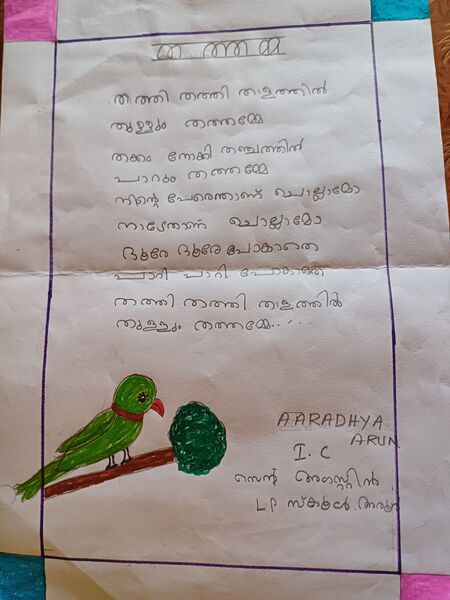 തത്തമ്മ
തത്തി തത്തി താളത്തിൽ
തുള്ളും തത്തമ്മേ
തക്കം നോക്കി തഞ്ചത്തിൽ
പാറും തത്തമ്മേ
നിന്റെ പേരെന്താണ് ചൊല്ലാമോ
നാടേതാണ് ചൊല്ലാമോ
ദൂരേ ദൂരേ പോകാതെ
പാറി പാറി പോകാതെ
തത്തി തത്തി താളത്തിൽ
തുള്ളും തത്തമ്മേ......
AARADHYA
ARUN
I. C
സെന്റ് അഗസ്റ്റിൻ
LP സ്കൂൾ.